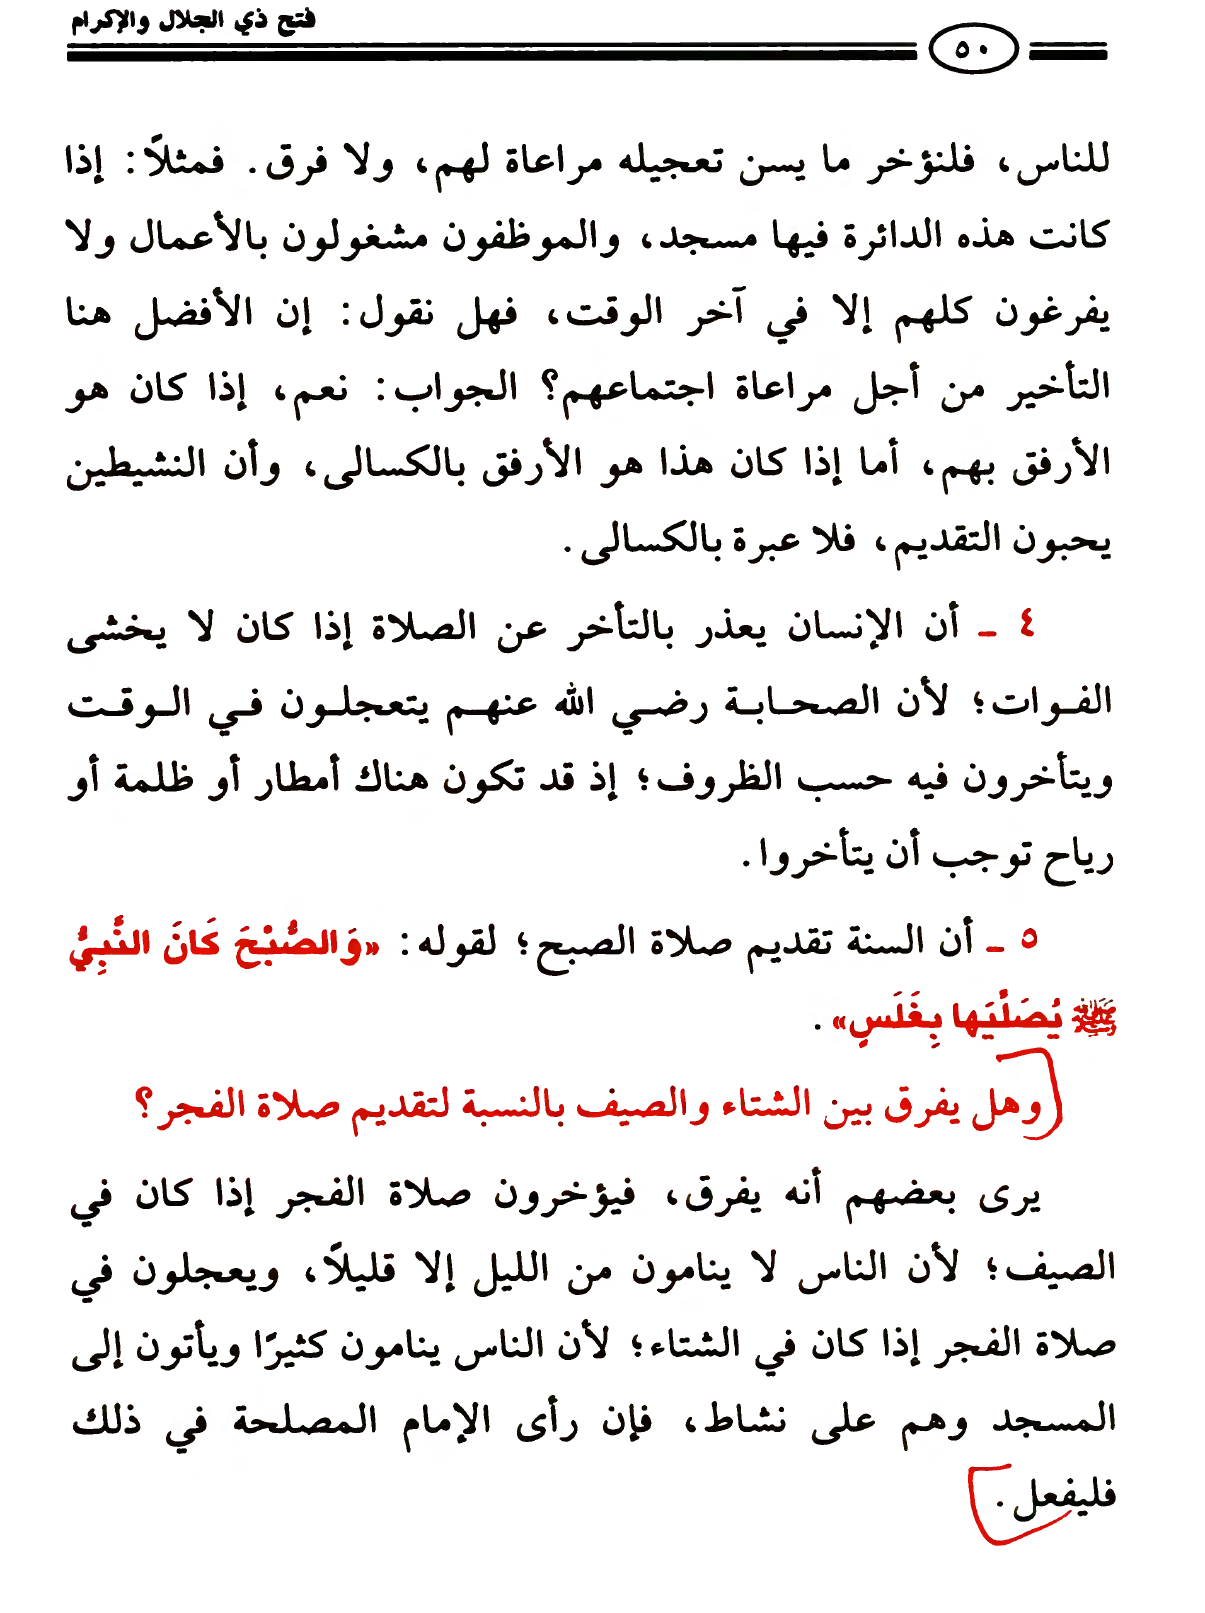 فتح ذي الجلال والإكرام
٥٠
للناس، فلنؤخر ما يسن تعجيله مراعاة لهم، ولا فرق. فمثلاً: إذا
كانت هذه الدائرة فيها مسجد، والموظفون مشغولون بالأعمال ولا
يفرغون كلهم إلا في آخر الوقت، فهل نقول: إن الأفضل هنا
التأخير من أجل مراعاة اجتماعهم؟ الجواب: نعم، إذا كان هو
الأرفق بهم، أما إذا كان هذا هو الأرفق بالكسالى، وأن النشيطين
يحبون التقديم، فلا عبرة بالكسالى.
٤ ـ أن الإنسان يعذر بالتأخر عن الصلاة إذا كان لا يخشى
الفوات؛ لأن الصحابة رضي الله عنهم يتعجلون في الوقت
ويتأخرون فيه حسب الظروف؛ إذ قد تكون هناك أمطار أو ظلمة أو
رياح توجب أن يتأخروا.
٥ ـ أن السنة تقديم صلاة الصبح؛ لقوله: «وَالصُّبْحَ كَانَ النَّبِيُّ
ﷺ يُصَلِّيَها بِغَلَسٍ».
وهل يفرق بين الشتاء والصيف بالنسبة لتقديم صلاة الفجر؟
يرى بعضهم أنه يفرق، فيؤخرون صلاة الفجر إذا كان في
الصيف؛ لأن الناس لا ينامون من الليل إلا قليلاً، ويعجلون في
صلاة الفجر إذا كان في الشتاء؛ لأن الناس ينامون كثيرًا ويأتون إلى
المسجد وهم على نشاط، فإن رأى الإمام المصلحة في ذلك
فليفعل.